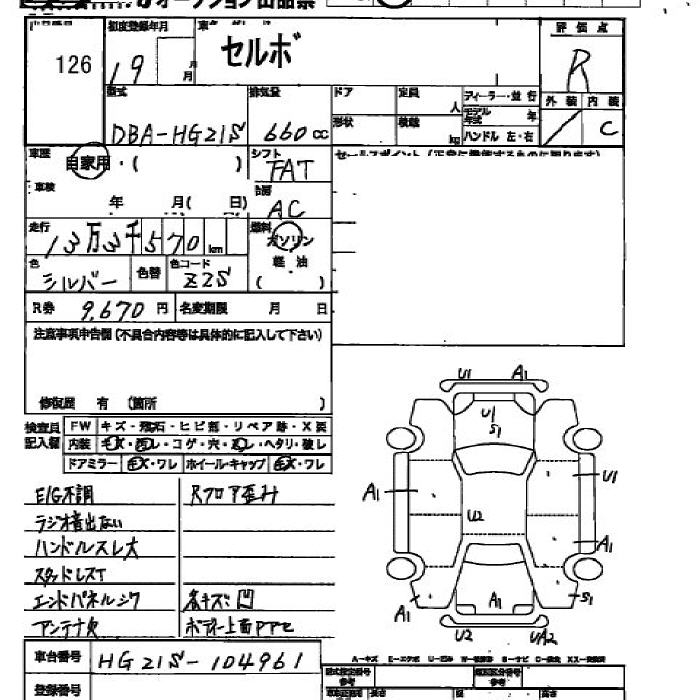 オークション出品票
126
初度登録年月
19
月
月
セルボ
評価点
R
型式
DBA-HG21S
排気量
660 cc
ドア
定員
人
形状
積載
kg
ディーラー・並行
モデル年式 年
ハンドル 左・右
外装 内装
/ C
車歴
自家用・( )
シフト
FAT
車検
年 月( 日)
AC
走行
13万3千570 km
燃料
ガソリン
軽油
( )
色
シルバー
色替
色コード
Z2S
R券 9,670 円
名変期限 月 日
注意事項申告欄(不具合内容等は具体的に記入して下さい)
修復歴 有 (箇所 )
検査員記入欄
FW キズ・飛石・ヒビ割・リペア跡・X要
内装 キズ・汚レ・コゲ・穴・スレ・ヘタリ・破レ
ドアミラー キズ・ワレ ホイール・キャップ キズ・ワレ
E/G不調
Rフロア歪み
ラジオ音出ない
ハンドルスレ大
スタッドレスT
エンドパネルシワ
各キズ凹
アンテナ欠
U1 A1
U1
S1
A1
U1
U2
A1
A1
A1
S1
U2
UA2
車台番号
HG21S-104961
登録番号